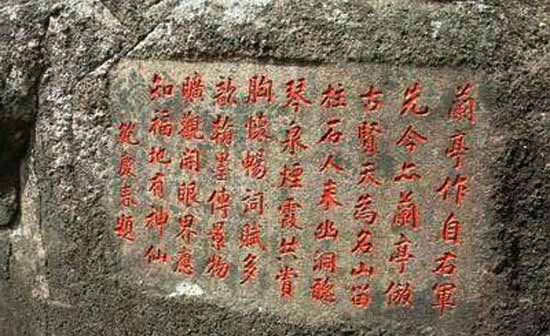 蘭亭作自右軍
先今亦蘭亭倣
古賢天為名山留
柱石人來幽洞聽
琴泉煙霞共賞
胸懷暢詞賦多
歆翰墨傳景物
曠觀開眼界應
知福地有神仙
範慶春題